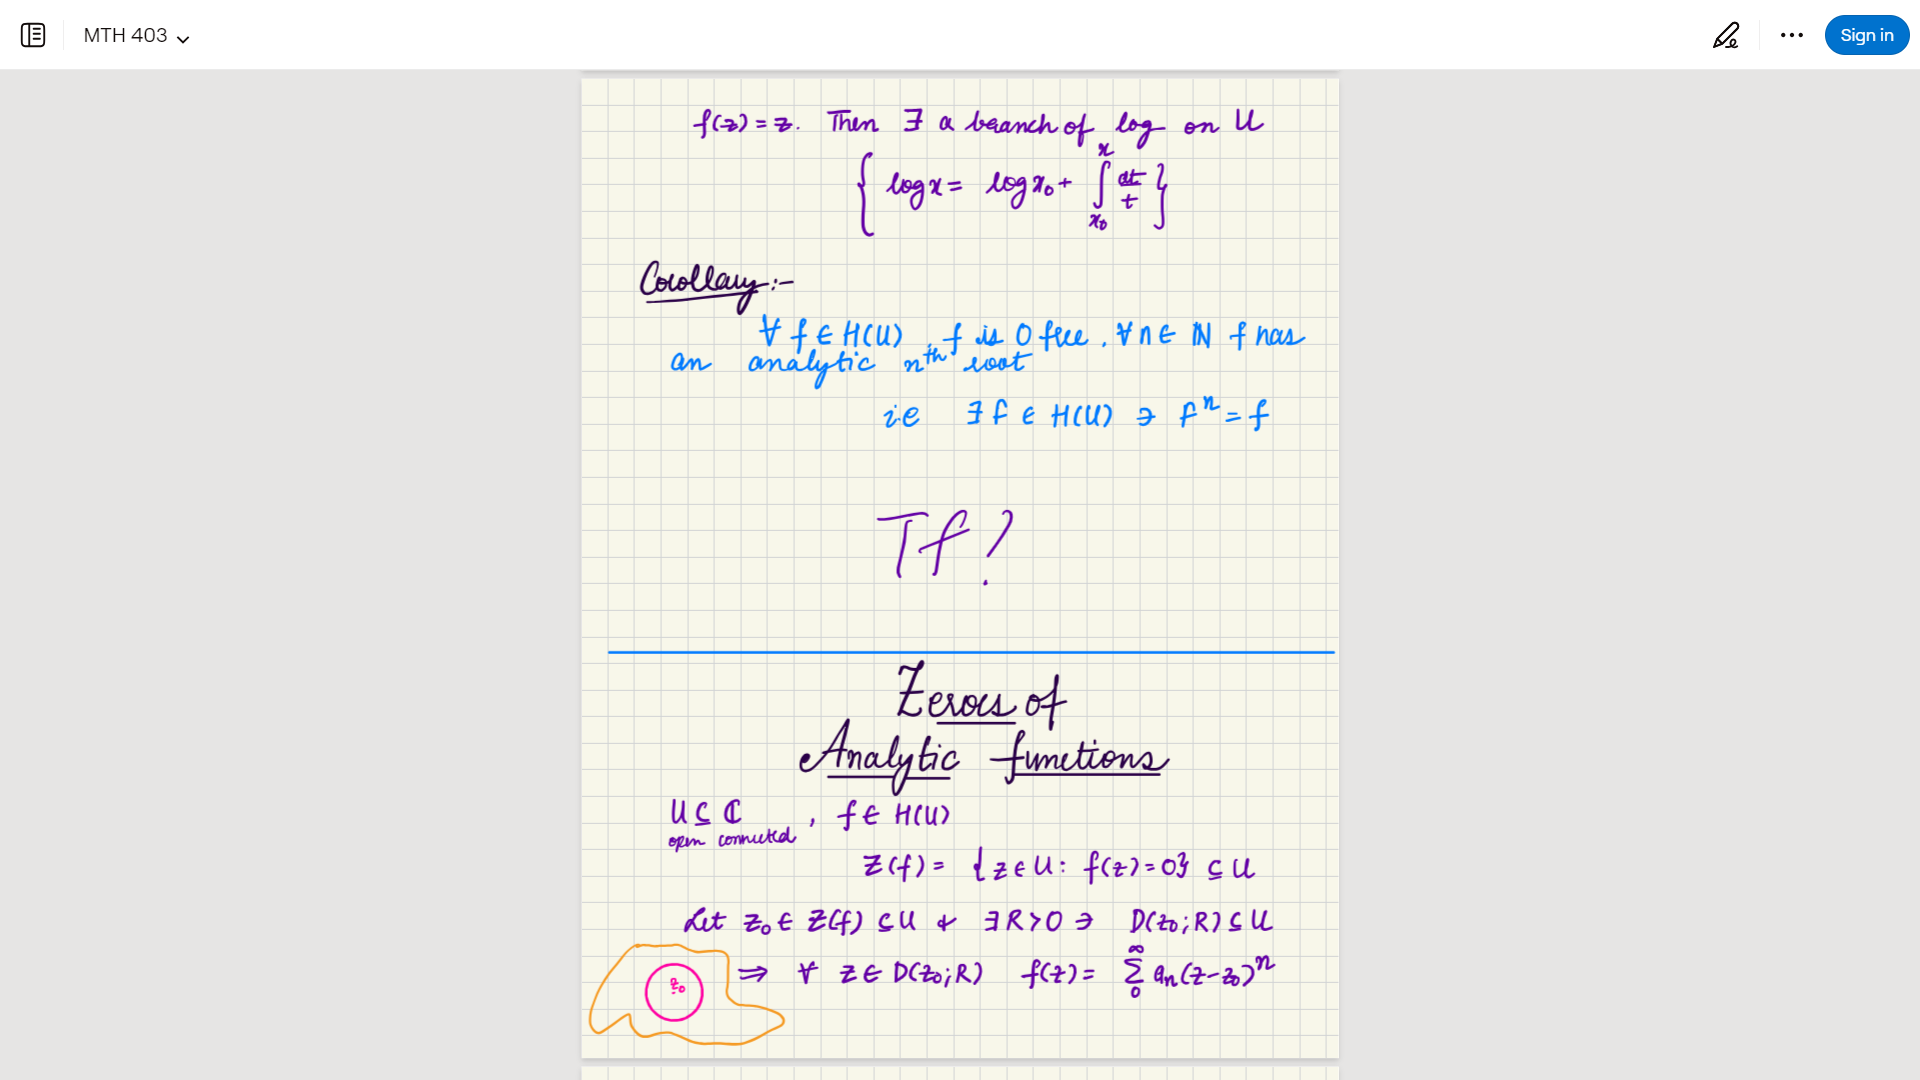 MTH 403
Sign in
f(z) = z. Then ∃ a branch of log on U
{ log x = log x₀ + ∫_{x₀}^{x} dt/t }
Corollary :-
∀ f ∈ H(U), f is 0 free, ∀ n ∈ ℕ f has
an analytic nᵗʰ root
ie ∃ F ∈ H(U) ∋ Fⁿ = f
Tf?
Zeroes of
Analytic functions
U ⊆ ℂ, f ∈ H(U)
open connected
Z(f) = {z ∈ U : f(z) = 0} ⊆ U
Let z₀ ∈ Z(f) ⊆ U & ∃ R > 0 ∋ D(z₀; R) ⊆ U
⇒ ∀ z ∈ D(z₀; R) f(z) = Σ_{0}^{∞} aₙ(z-z₀)ⁿ
z₀